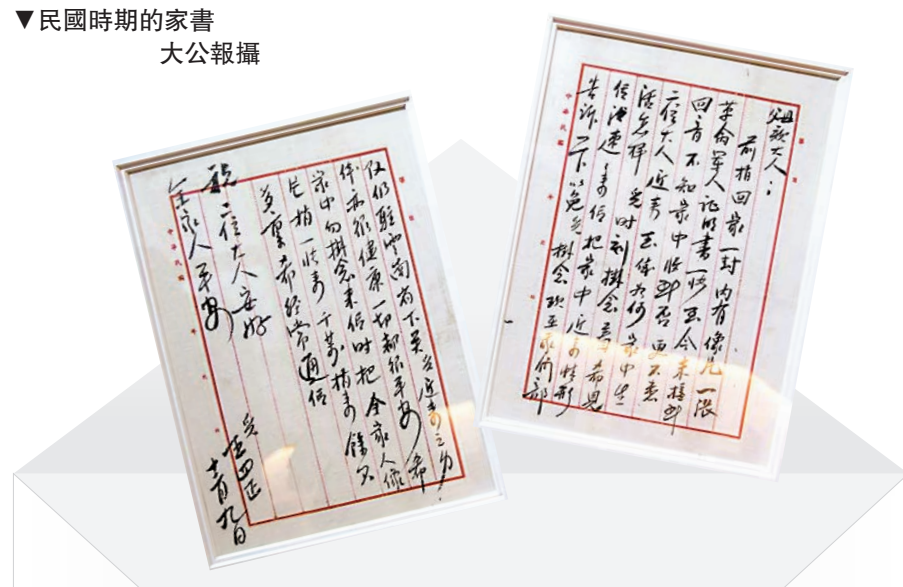 ▼民國時期的家書
大公報攝
父母親大人：
前捎回家一封內有像片一張
革命軍人证明書一份至今未接到
回音不知家中收到否更不
二位大人近来玉体如何家中生
活怎样兒时刻掛念着希見
信後速来信把家中近来情形
告诉一下以免兒掛念現在我们部
中華民國
仍駐雲南省下関兒近来之身
体亦很健康一切都很平安希
家中勿掛念来信时把全家人像
片捎一张来千萬捎来餘不
多稟希经常通信
祝二位大人安好
全家人平安
中華民國
兒
月九日